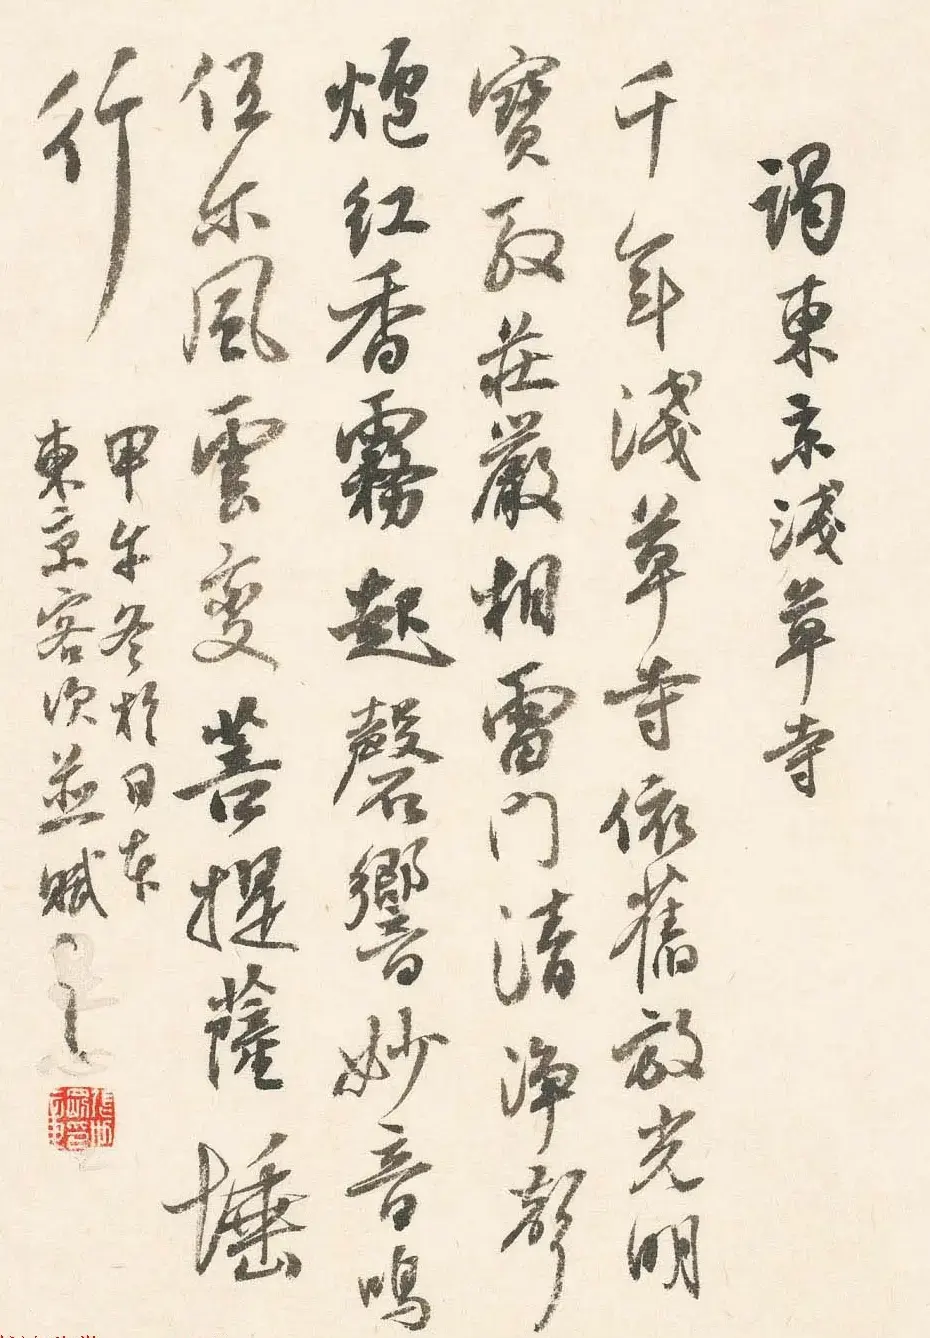 謁東京淺草寺
千年淺草寺依舊放光明
寶殿莊嚴相雷門清淨聲
爐红香霧起磬響妙音鳴
任尔風雲变菩提薩埵
行
甲午冬於日本
東京客次並賦